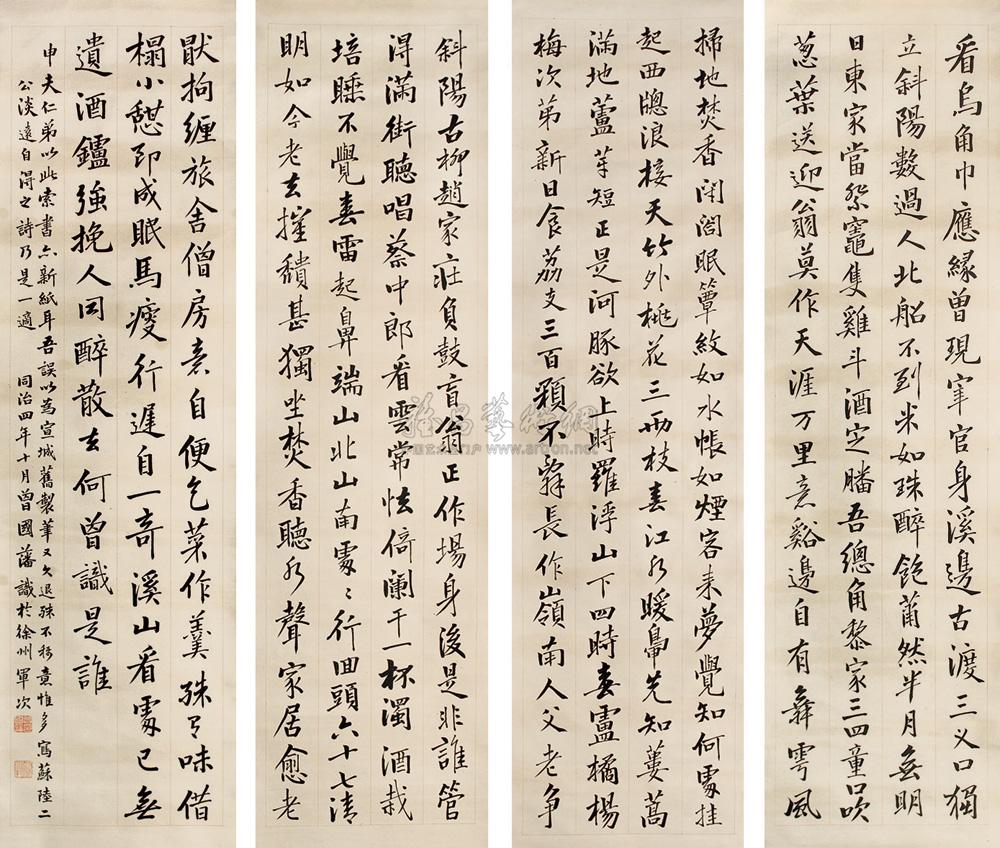 看烏角巾應緣曾現宰官身溪邊古渡三义口獨
立斜陽數過人北船不到米如珠醉飽蕭然半月無明
日東家當祭竈隻雞斗酒定膰吾總角黎家三四童口吹
葱葉送迎翁莫作天涯万里意谿邊自有舞雩風
掃地焚香閉閤眠簟紋如水帳如煙客来夢覺知何處挂
起西牕浪接天竹外桃花三两枝春江水暖鳧先知蔞蒿
滿地蘆芽短正是河豚欲上時羅浮山下四時春盧橘楊
梅次第新日食荔支三百顆不辭長作嶺南人父老争
斜陽古柳趙家莊負鼓盲翁正作場身後是非誰管
得滿街聽唱蔡中郎看雲常怯倚闌干一杯濁酒栽
培睡不覺春雷起鼻端山北山南處〻行回頭六十七清
明如今老去摧頹甚獨坐焚香聽水聲家居愈老
厭拘纏旅舍僧房素自便乞菜作羹殊有味借
榻小憇即成眠馬瘦行遲自一奇溪山看處已無
遺酒鑪強挽人同醉散去何曾識是誰
申夫仁弟以此索書亦新紙耳吾誤以為宣城舊製筆又久退殊不称意惟多寫蘇陸二
公淡遠自得之詩乃是一適 同治四年十月曾國藩識於徐州軍次
www.artron.net